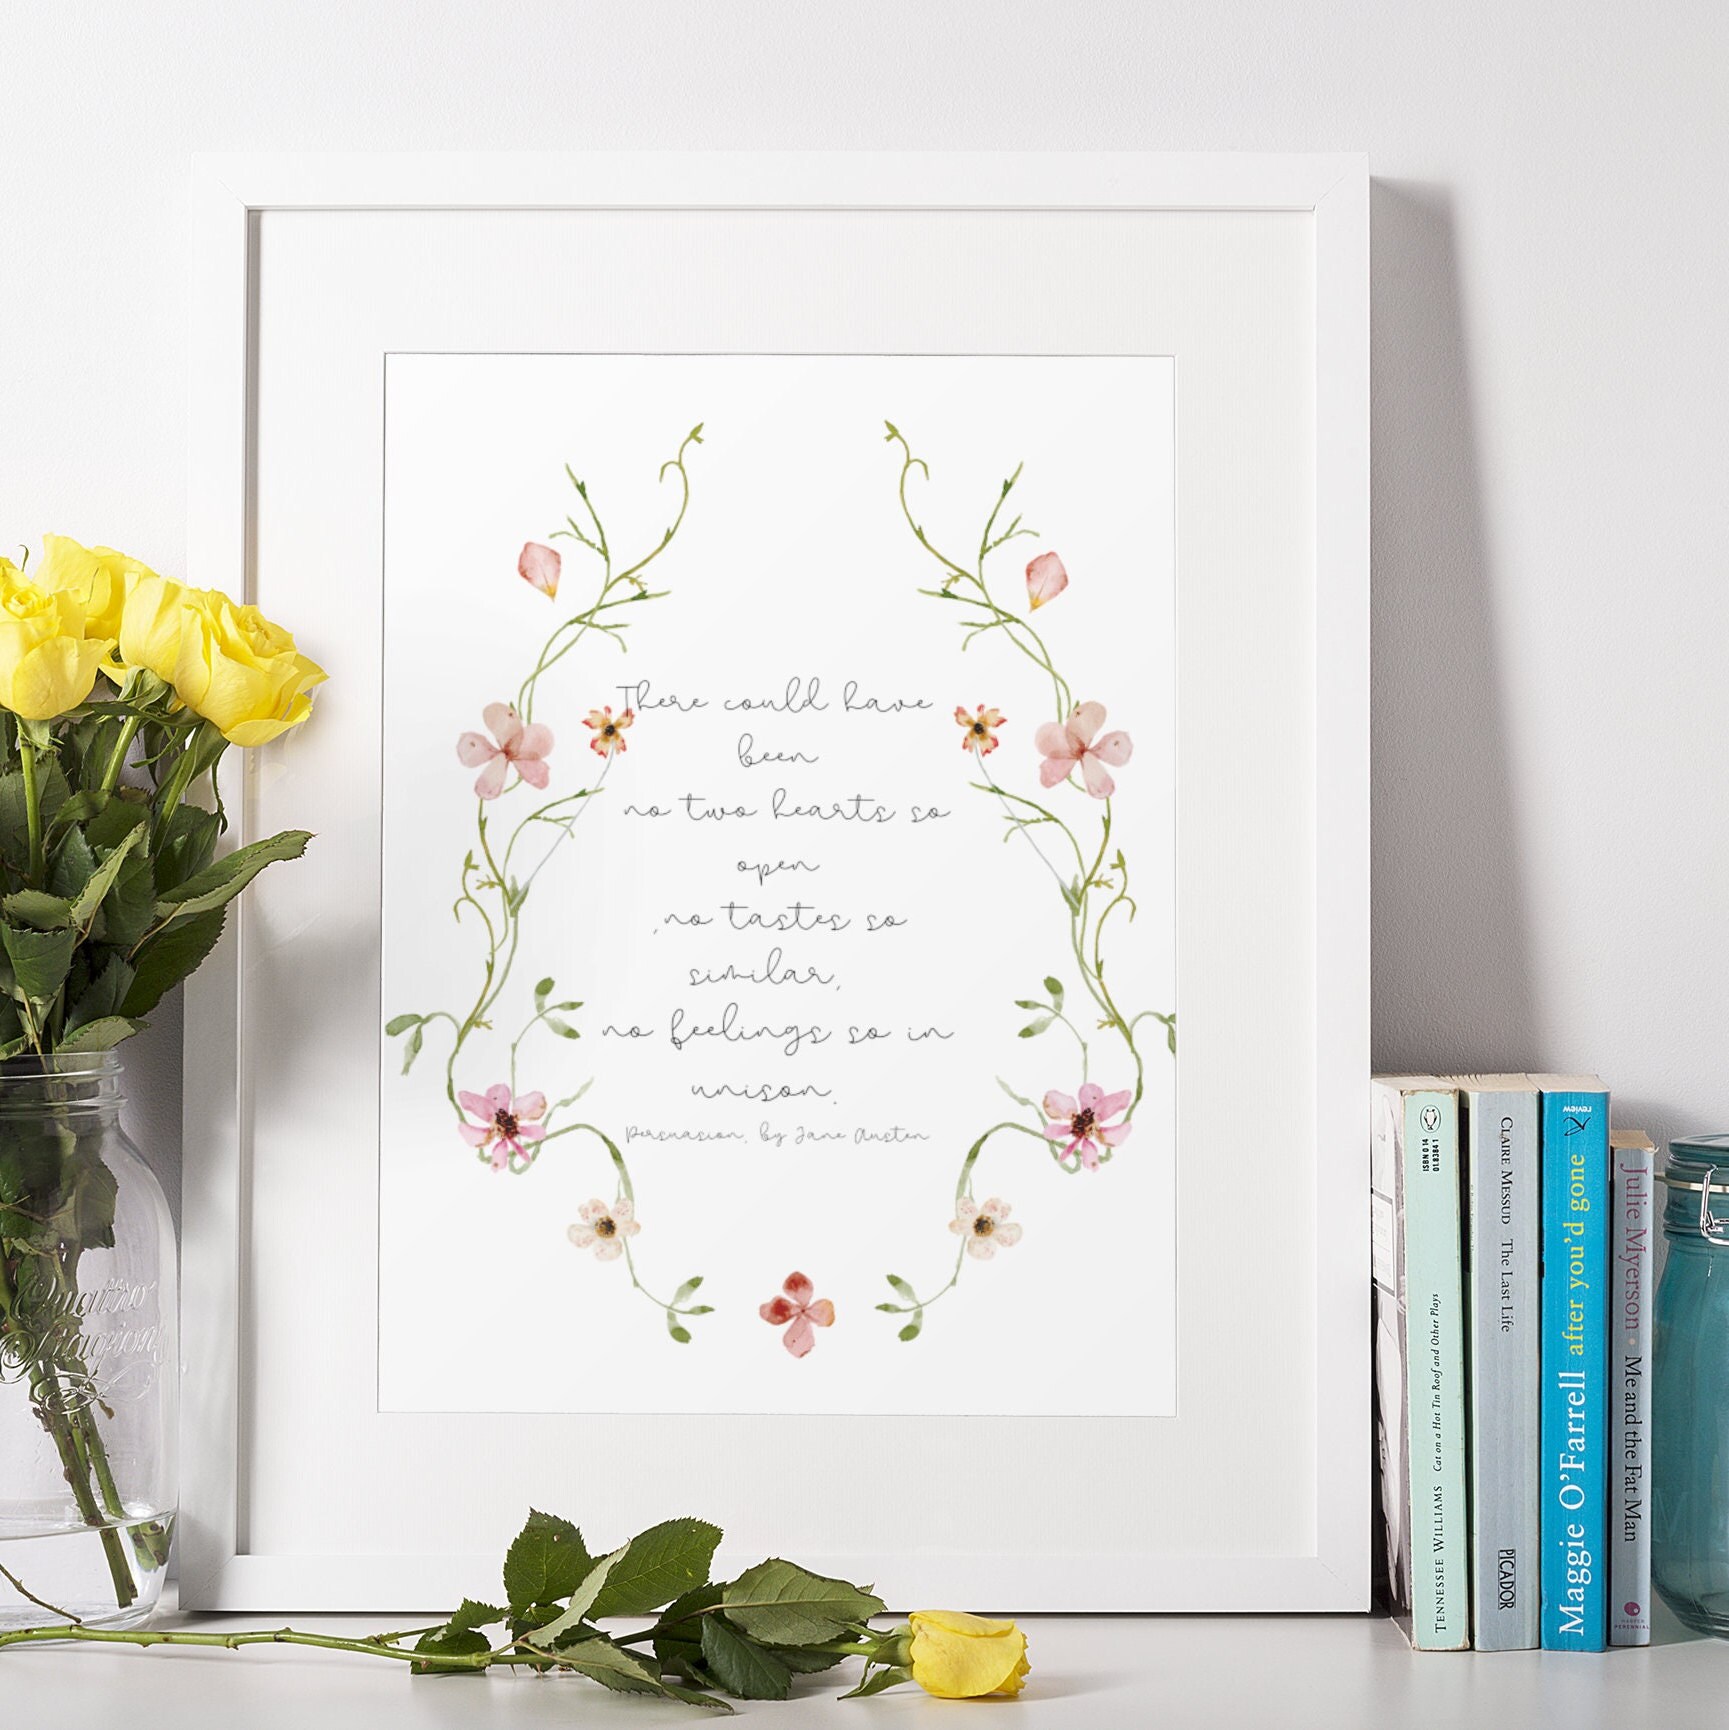 There could have
been
no two hearts so
open
,no tastes so
similar,
no feelings so in
unison.
Persuasion, by Jane Austen
Quattro
Stagioni
ISBN 0 14
01.8384 1
TENNESSEE WILLIAMS Cat on a Hot Tin Roof and Other Plays
CLAIRE MESSUD The Last Life
PICADOR
review
Maggie O'Farrell after you'd gone
Julie Myerson • Me and the Fat Man
HARPER
PERENNIAL